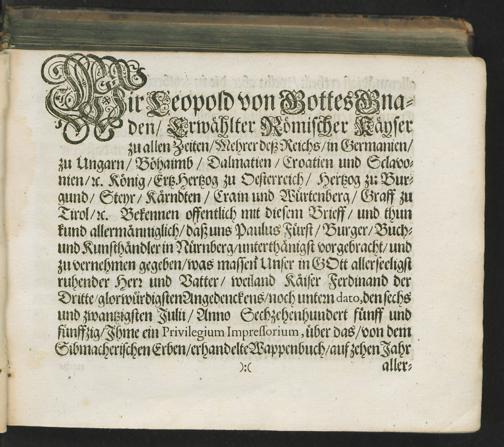 Wir Leopold von Gottes Gna-
den/ Erwählter Römischer Käyser
zu allen Zeiten/ Mehrer deß Reichs/ in Germanien/
zu Ungarn/ Böhaimb/ Dalmatien/ Croatien und Sclavo-
nien/ ꝛc. König/ Ertz-Hertzog zu Oesterreich/ Hertzog zu Bur-
gund/ Steyr/ Kärndten/ Crain und Würtenberg/ Graff zu
Tirol/ ꝛc. Bekennen offentlich mit diesem Brieff/ und thun
kund allermänniglich/ daß uns Paulus Fürst/ Burger/ Buch-
und Kunsthändler in Nürnberg/ unterthänigst vorgebracht/ und
zu vernehmen gegeben/ was massen Unser in GOtt allerseeligst
ruhender Herr und Vatter/ weiland Käiser Ferdinand der
Dritte/ glorwürdigsten Angedenckens/ noch unterm dato, den sechs
und zwantzigsten Julii/ Anno Sechzehenhundert fünff und
fünffzig/ Ihme ein Privilegium Impressorium, über das/ von dem
Sibmacherischen Erben/ erhandelte Wappenbuch/ auf zehen Jahr
):( aller-